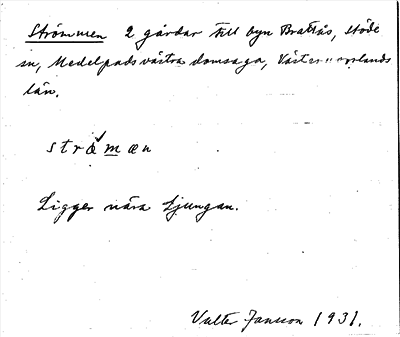 Strömmen 2 gårdar till byn Brattås, Stöde
sn, Medelpads västra domsaga, Väster"norrlands
län.
strœ̌mæn
Ligger nära Ljungan.
Valter Jansson 1931.